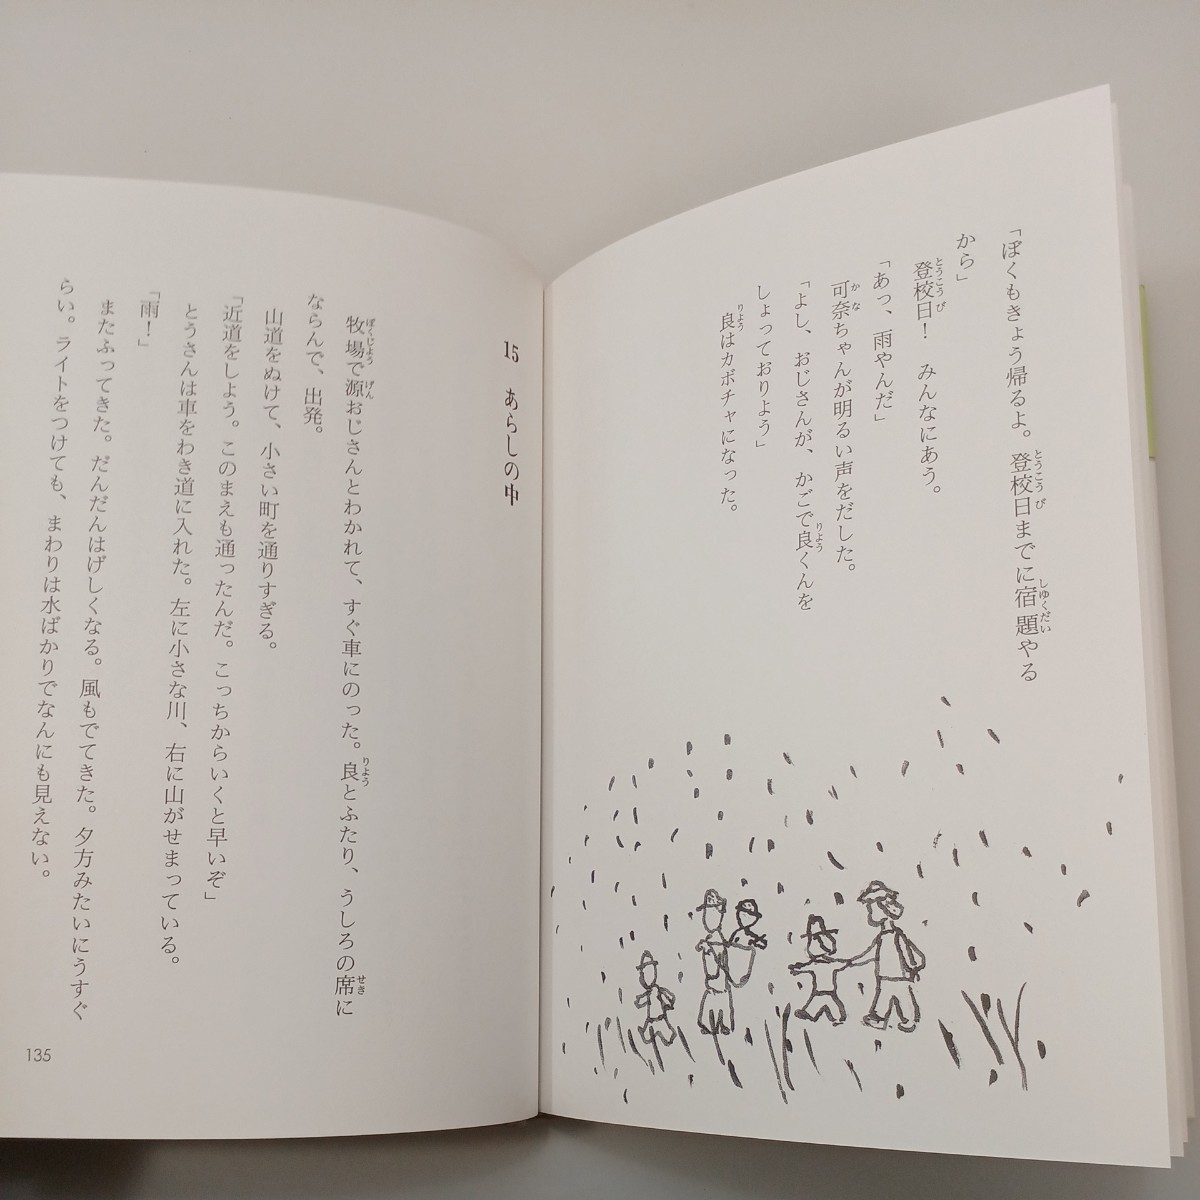 「ぼくもきょう帰るよ。登校日までに宿題やる
とうこうび しゅくだい
から」
登校日！　みんなにあう。
とうこうび
「あっ、雨やんだ」
可奈ちゃんが明るい声をだした。
かな
「よし、おじさんが、かごで良くんを
りょう
しょっておりよう」
良はカボチャになった。
りょう
15　あらしの中
牧場で源おじさんとわかれて、すぐ車にのった。良とふたり、うしろの席に
ぼくじょう げん りょう せき
ならんで、出発。
山道をぬけて、小さい町を通りすぎる。
「近道をしよう。このまえも通ったんだ。こっちからいくと早いぞ」
とうさんは車をわき道に入れた。左に小さな川、右に山がせまっている。
「雨！」
またふってきた。だんだんはげしくなる。風もでてきた。夕方みたいにうすぐ
らい。ライトをつけても、まわりは水ばかりでなんにも見えない。
135